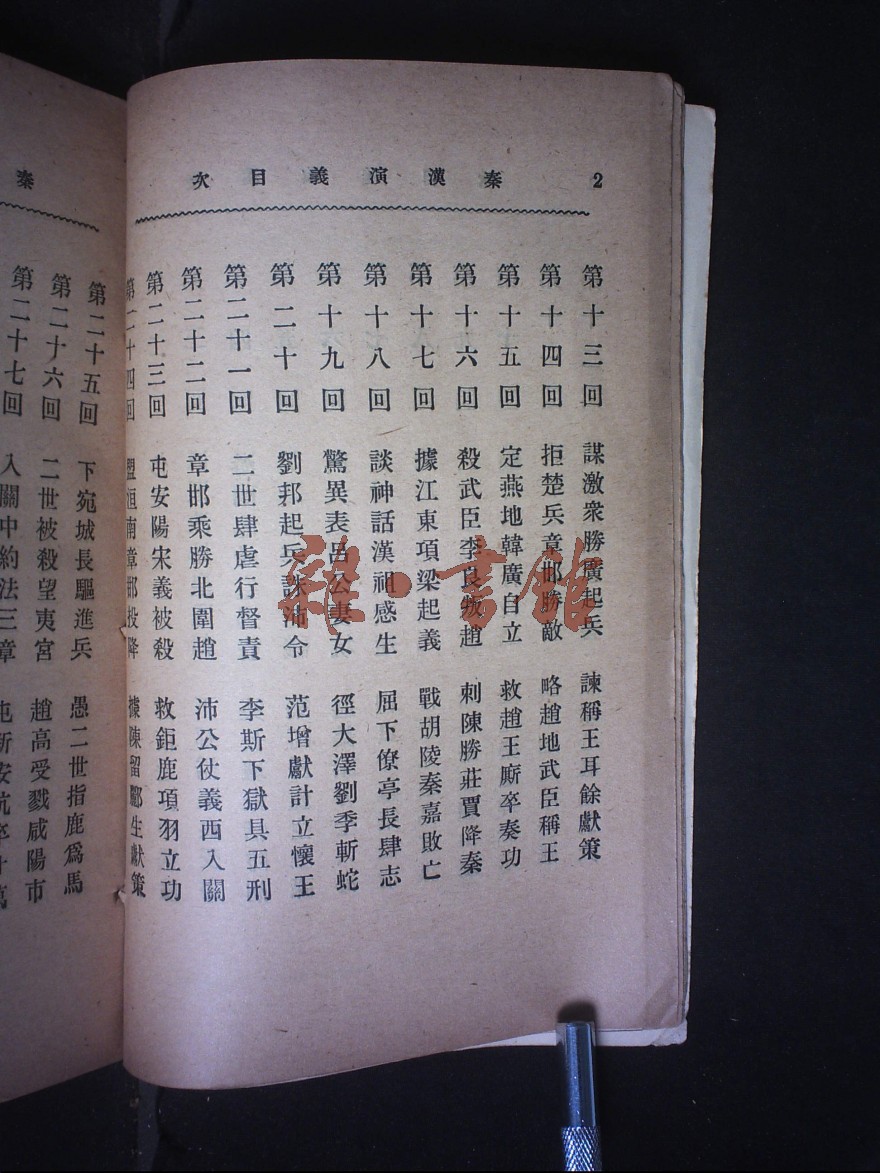 2 秦漢演義目次
第十三回 謀激衆勝廣起兵 諫稱王耳餘獻策
第十四回 拒楚兵章邯勝敵 略趙地武臣稱王
第十五回 定燕地韓廣自立 救趙王廝卒奏功
第十六回 殺武臣李良叛趙 刺陳勝莊賈降秦
第十七回 據江東項梁起義 戰胡陵秦嘉敗亡
第十八回 談神話漢祖感生 屈下僚亭長肆志
第十九回 驚異表呂公妻女 徑大澤劉季斬蛇
第二十回 劉邦起兵誅沛令 范增獻計立懷王
第二十一回 二世肆虐行督責 李斯下獄具五刑
第二十二回 章邯乘勝北圍趙 沛公仗義西入關
第二十三回 屯安陽宋義被殺 救鉅鹿項羽立功
第二十四回 盟洹南章邯投降 據陳留酈生獻策
秦
第二十五回 下宛城長驅進兵 愚二世指鹿爲馬
第二十六回 二世被殺望夷宮 趙高受戮咸陽市
第二十七回 入關中約法三章 屯新安坑卒廿萬
雜·書館